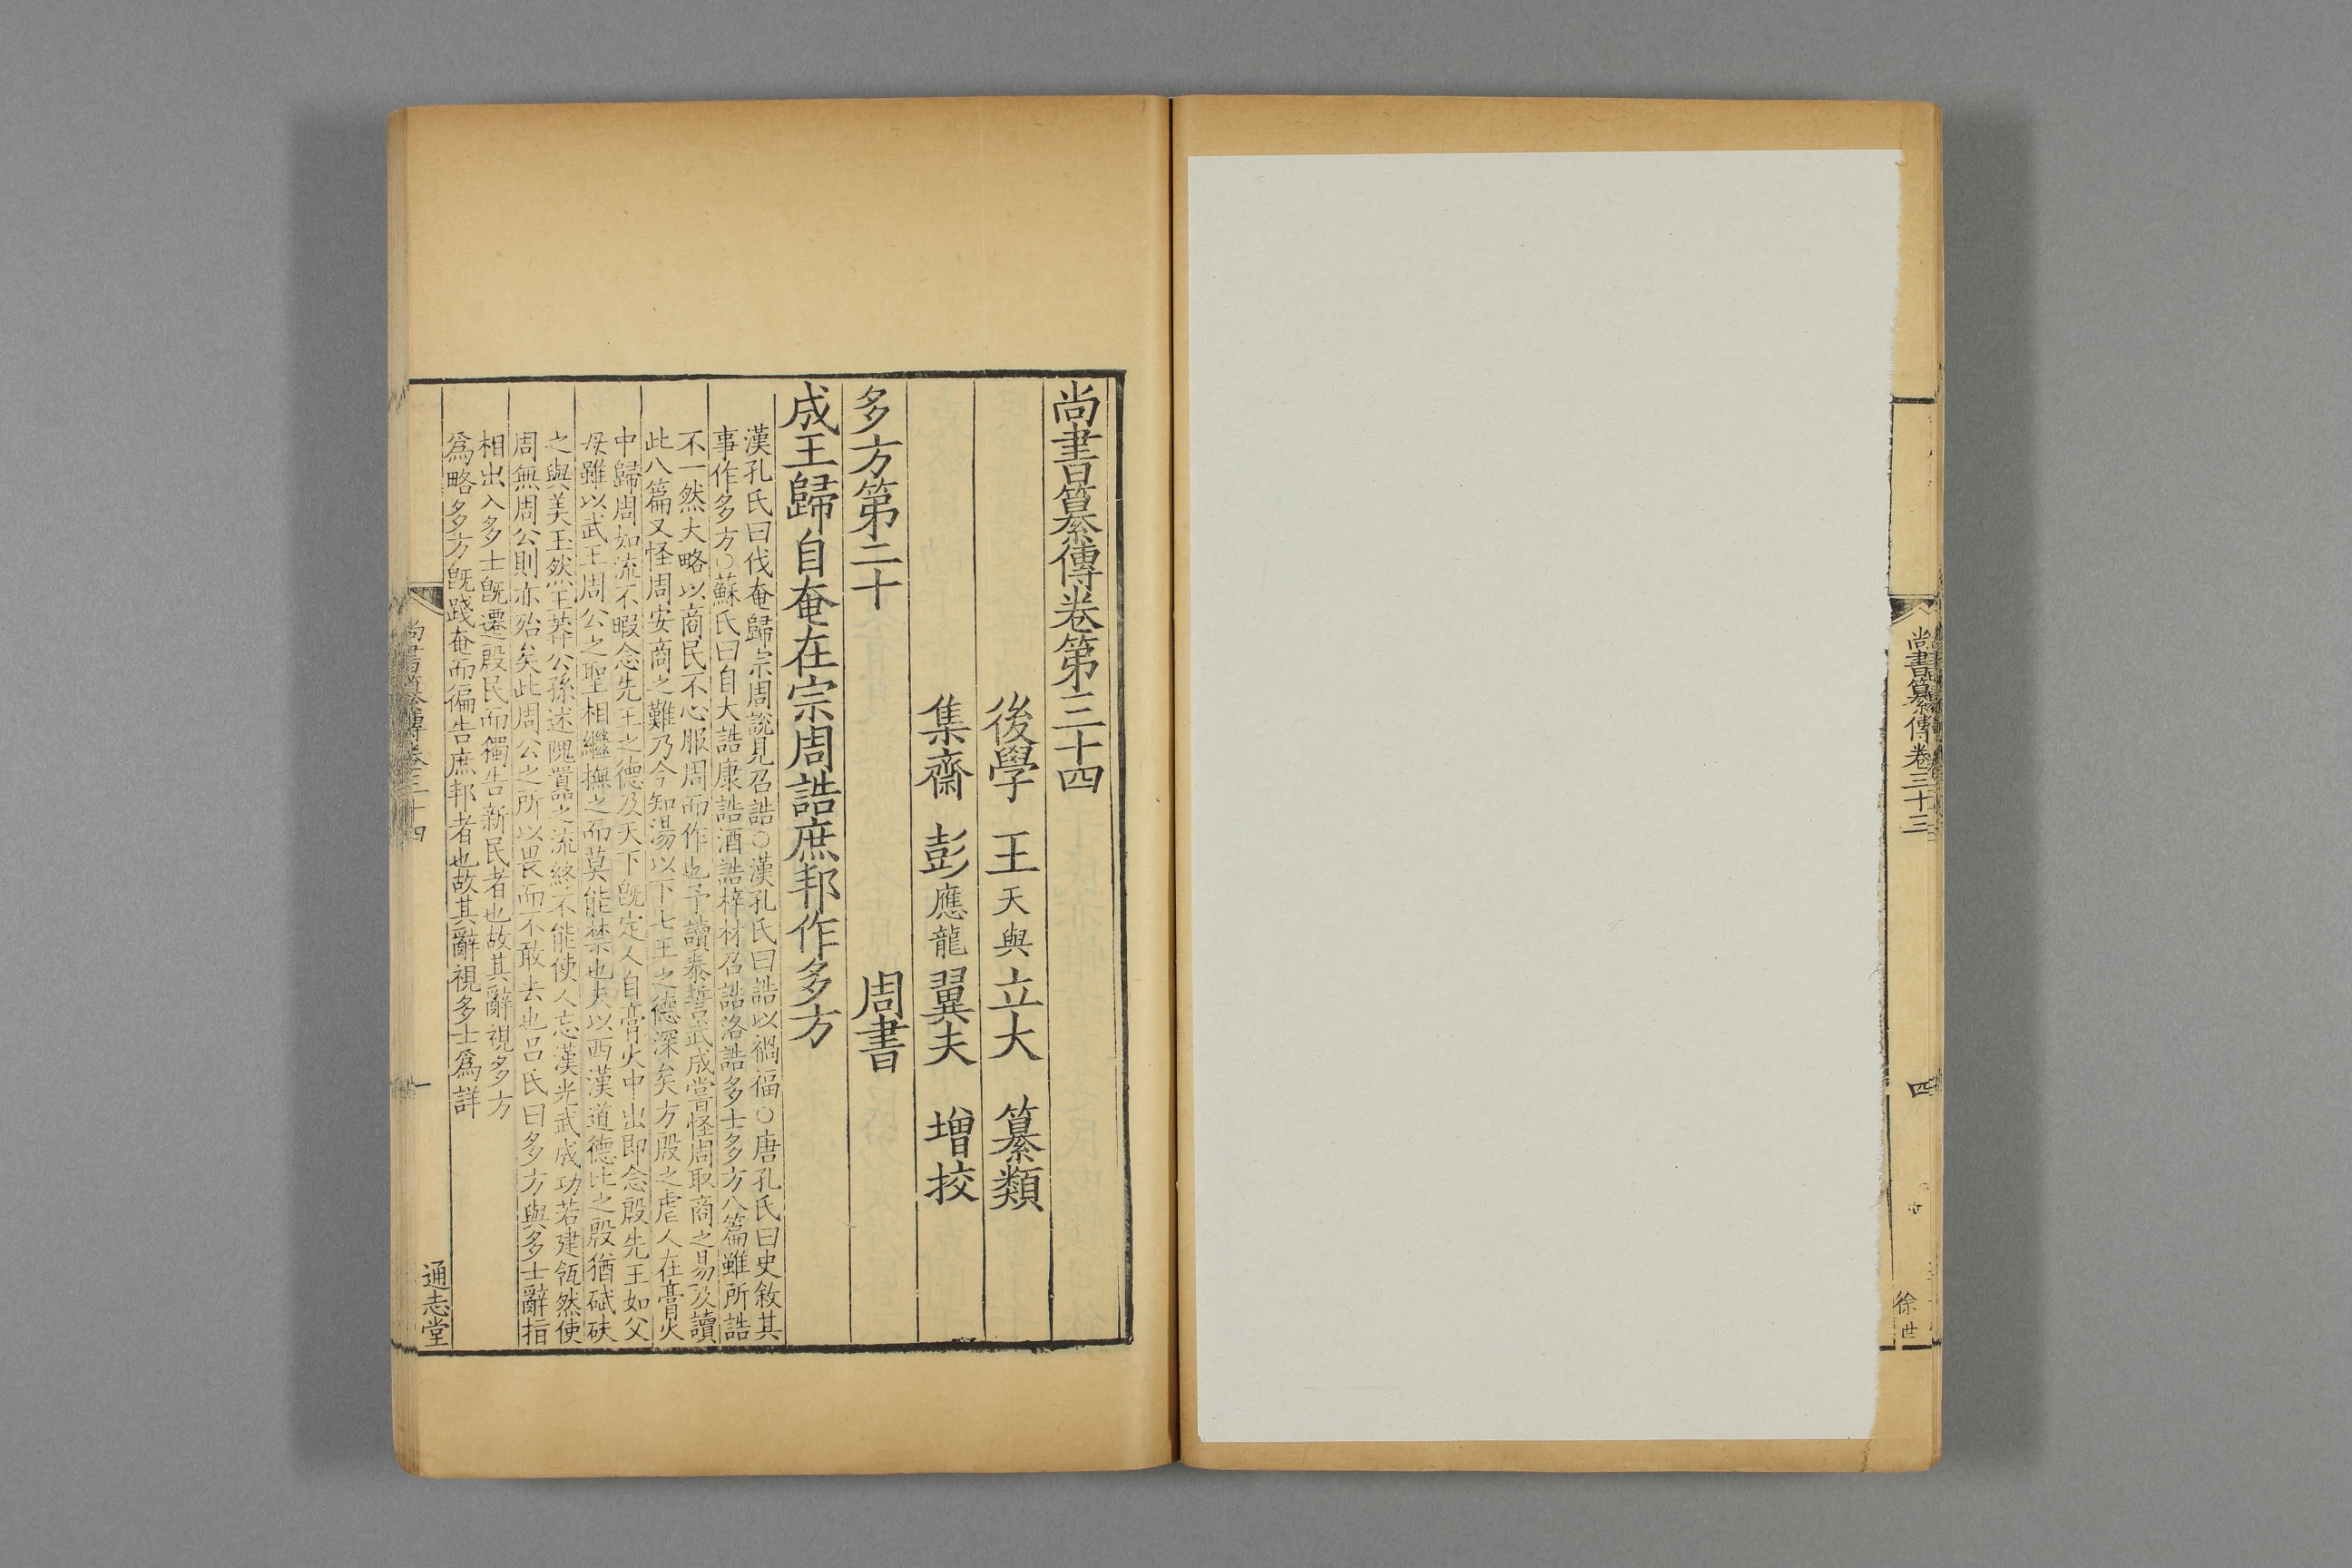 尚書纂傳卷三十三
四
徐世
尚書纂傳卷第三十四
後學 王天與立大 纂類
集齋 彭應龍翼夫 增挍
多方第二十 周書
成王歸自奄在宗周誥庶邦作多方
漢孔氏曰伐奄歸宗周説見召誥○漢孔氏曰誥以禍福○唐孔氏曰史敘其
事作多方○蘇氏曰自大誥康誥酒誥梓材召誥洛誥多士多方八篇雖所誥
不一然大略以商民不心服周而作也予讀泰誓武成嘗怪周取商之易及讀
此八篇又怪周安商之難乃今知湯以下七王之德深矣方殷之虐人在膏火
中歸周如流不暇念先王之德及天下旣定人自膏火中出即念殷先王如父
母雖以武王周公之聖相繼撫之而莫能禁也夫以西漢道德比之殷猶碔砆
之與美玉然王莽公孫述隗囂之流終不能使人忘漢光武成功若建瓴然使
周無周公則亦殆矣此周公之所以畏而不敢去也呂氏曰多方與多士辭指
相出入多士旣遷殷民而獨告新民者也故其辭視多方
爲略多方旣踐奄而徧告庶邦者也故其辭視多士爲詳
尚書纂傳卷三十四
一
通志堂